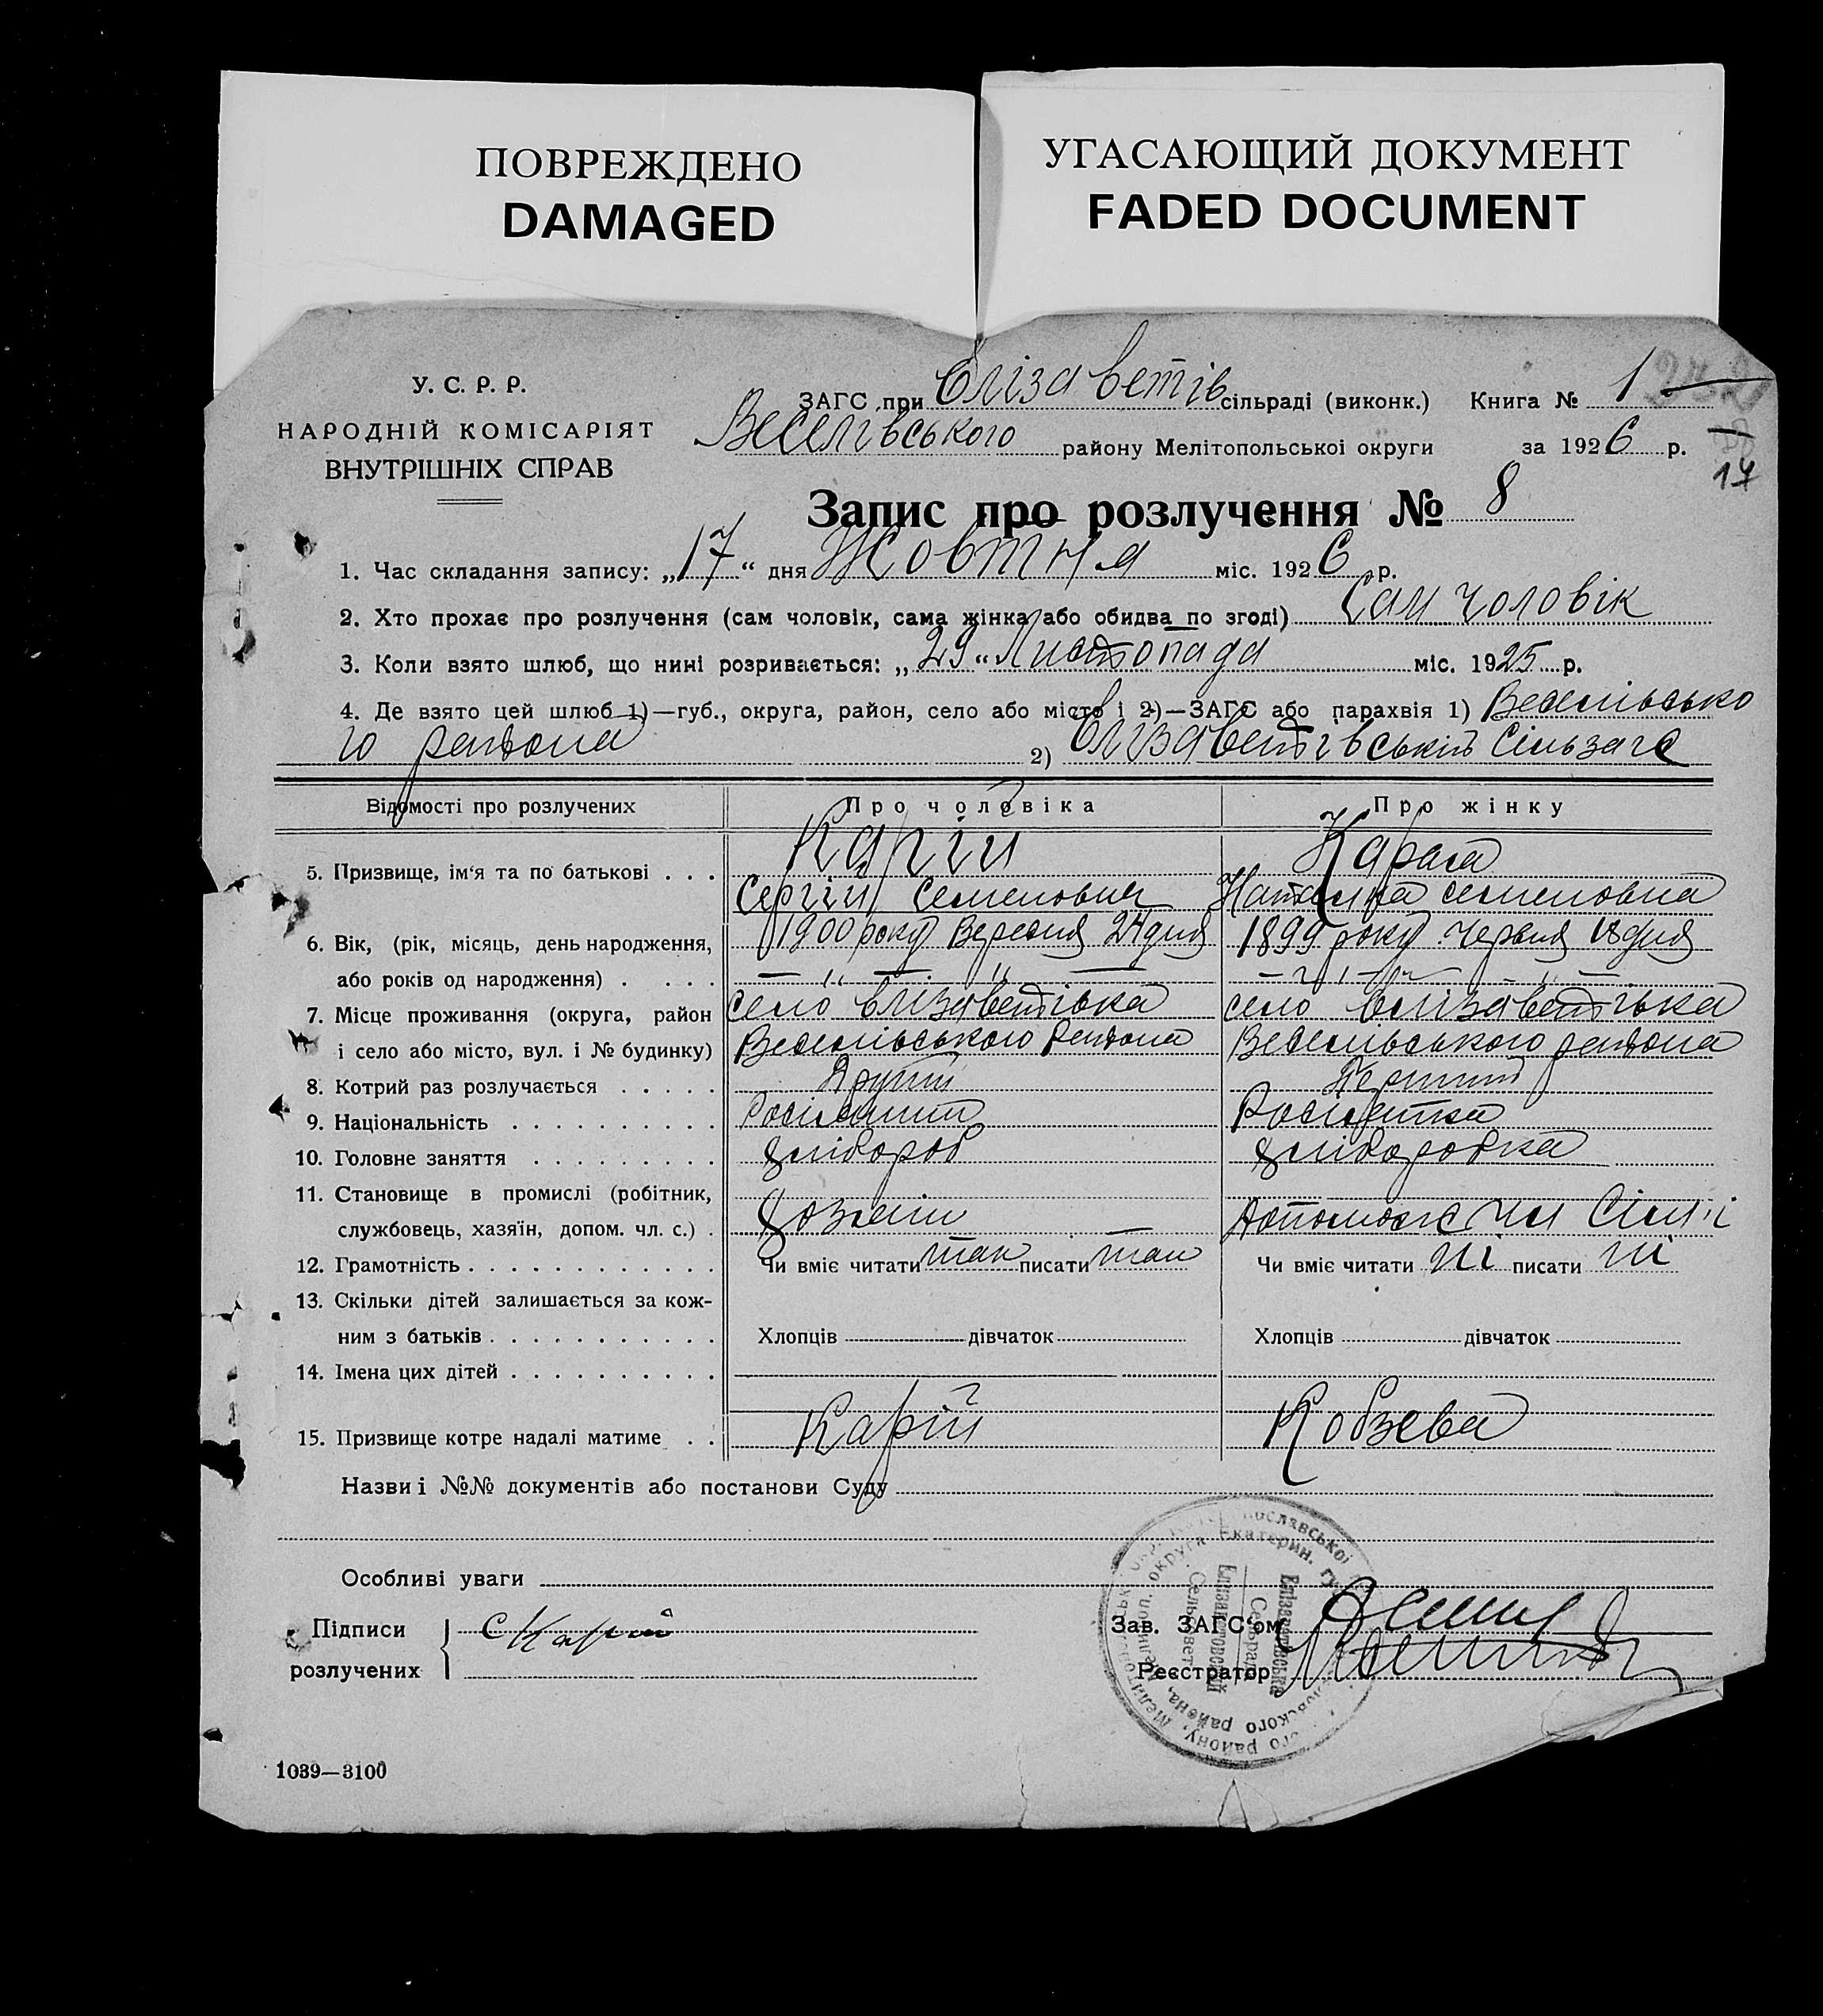 ПОВРЕЖДЕНО
DAMAGED
УГАСАЮЩИЙ ДОКУМЕНТ
FADED DOCUMENT
У. С. Р. Р.
НАРОДНІЙ КОМІСАРІЯТ
ВНУТРІШНІХ СПРАВ
ЗАГС при Єлізаветів сільраді (виконк.) Книга № 1
Веселівського району Мелітопольскої округи за 1926 р.
17
Запис про розлучення № 8
1. Час складання запису: „17“ дня Жовтня міс. 1926 р.
2. Хто прохає про розлучення (сам чоловік, сама жінка або обидва по згоді) Сам чоловік
3. Коли взято шлюб, що нині розривається: „29“ Листопада міс. 1925 р.
4. Де взято цей шлюб 1)—губ., округа, район, село або місто і 2)—ЗАГС або парахвія 1) Веселівсько
го района 2) Єлізаветівській Сільзагс
Відомості про розлучених Про чоловіка Про жінку
5. Призвище, ім‘я та по батькові . . . Карій Карая
Сергій Семенович Наталка семеновна
6. Вік, (рік, місяць, день народження, 1900 року Вересня 24 дня 1899 року Червня 18 дня
або років од народження) . . . .
7. Місце проживання (округа, район село Єлізаветівка село Єлізаветівка
і село або місто, вул. і № будинку) Веселівського района Веселівського района
8. Котрий раз розлучається . . . . . Другий Перший
9. Національність . . . . . . . . . . Росіянин Росіянка
10. Головне заняття . . . . . . . . . хлібороб хліборобка
11. Становище в промислі (робітник,
службовець, хазяїн, допом. чл. с.) . хозяїн Допомогає чл Сімї
12. Грамотність . . . . . . . . . . . . Чи вміє читати так писати так Чи вміє читати ні писати ні
13. Скільки дітей залишається за кож-
ним з батьків . . . . . . . . . . . Хлопців дівчаток Хлопців дівчаток
14. Імена цих дітей . . . . . . . . . .
15. Призвище котре надалі матиме . . Карій Кобзева
Назви і №№ документів або постанови Суду
Особливі уваги
Підписи С Карій Зав. ЗАГС‘ом
розлучених Реєстратор
Єлізаветівська
Сельрада
Елизаветовский
Сельсовет
1039—3100